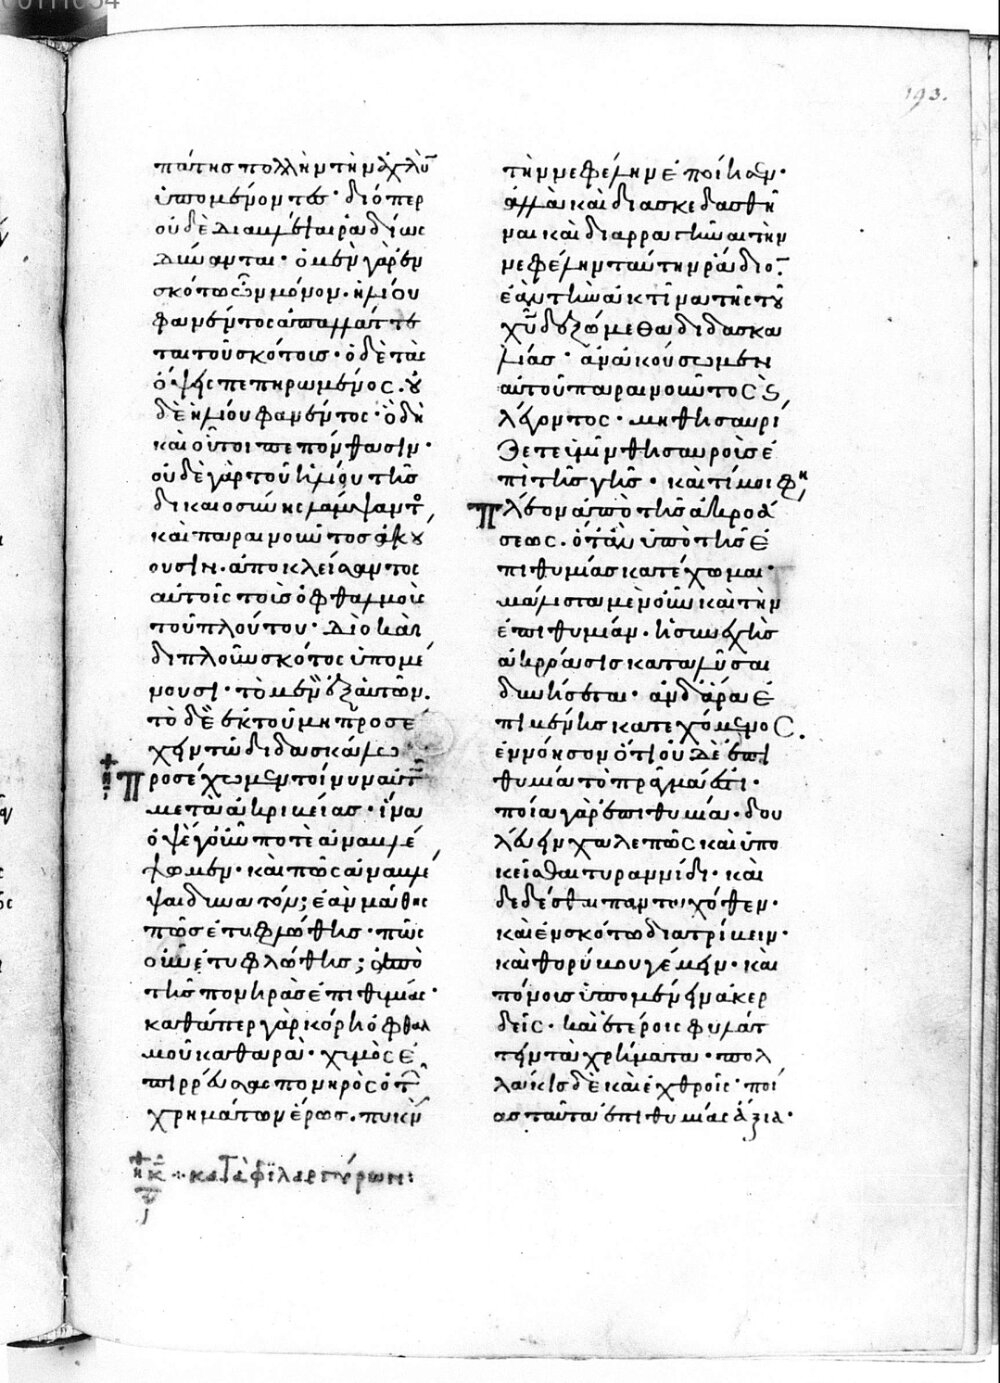 193.
πάτης πολλὴν τὴν ἀχλὺ
ὑπομένοντες· διόπερ
οὐδὲ διαμβλέψαι ῥαδίως
δύνανται· ὁ μὲν γὰρ ἐν
σκότω ὢν μόνον. ἡλίου
φανέντος ἀπαλλάττε
ται τοῦ σκότους· ὁ δὲ τὰς
ὄψεις πεπηρωμένος. οὐ
δὲ ἡλίου φανέντος· ὃ δὴ
καὶ οὗτοι πεπόνθασιν·
οὐδὲ γὰρ τοῦ ἡλίου τῆς
δικαιοσύνης λάμψαντος
καὶ παραινοῦντος ἀκού
ουσιν. ἀποκλείσαντος
αὐτοῖς τοὺς ὀφθαλμοὺς
τοῦ πλούτου· διὸ καὶ
διπλοῦν σκότος ὑπομέ
νουσι· τὸ μὲν ἐξ ἑαυτῶν.
τὸ δὲ ἐκ τοῦ μὴ προσέ
χειν τῶ διδασκάλω·
Προσέχωμεν τοίνυν αὐτῶ
μετὰ ἀκριβείας· ἵνα
ὀψὲ γοῦν ποτὲ ἀναβλέ
ψωμεν· καὶ πῶς ἀναβλέ
ψαι δυνατόν; ἐὰν μάθης
πῶς ἐτυφλώθης· πῶς
οὖν ἐτυφλώθης; ἀπὸ
τῆς πονηρᾶς ἐπιθυμίας·
καθάπερ γὰρ κόρη ὀφθαλ
μοῦ καθαρᾶ· χυμὸς ἐ
πιρρεύσας πονηρὸς ὁ τῶν
χρημάτων ἔρως. πυκνὴν
κατὰ φιλαργύρων:
τὴν νεφέλην ἐποίησεν·
ἀλλὰ καὶ διασκεδασθῆ
ναι καὶ διαρραγῆναι τὴν
νεφέλην ταύτην ῥάδιον.
ἐὰν τὴν ἀκτῖνα τῆς τοῦ
χυ δεξώμεθα διδασκα
λίας· ἂν ἀκούσωμεν
αὐτοῦ παραινοῦντος καὶ
λέγοντος· μὴ θησαυρί
ζετε ὑμῖν θησαυροὺς ἐ
πὶ τῆς γῆς· καὶ τί μοι φη
πλέον ἀπὸ τῆς ἀκροά
σεως. ὅταν ὑπὸ τῆς ἐ
πιθυμίας κατέχωμαι·
μάλιστα μὲν οὖν καὶ τὴν
ἐπιθυμίαν. ἡ συνεχὴς
ἀκρόασις καταλῦσαι
δυνήσεται· ἂν δ' ἄρα ἐ
πιμένης κατεχόμενος.
ἐννόησον ὅτι οὐδὲ ἐπι
θυμία τὸ πρᾶγμα ἐστί·
ποία γὰρ ἐπιθυμία. δου
λεύειν χαλεπῶς καὶ ὑπο
κεῖσθαι τυραννίδι· καὶ
δεδέσθαι πανταχόθεν·
καὶ ἐν σκότω διατρίβειν·
καὶ θορύβου γέμειν· καὶ
πόνους ὑπομένειν ἀκερ
δεῖς· καὶ ἑτέροις φυλάτ
τειν τὰ χρήματα· πολ
λάκις δὲ καὶ ἐχθροῖς· ποί
ας ταῦτα ἐπιθυμίας ἄξια·